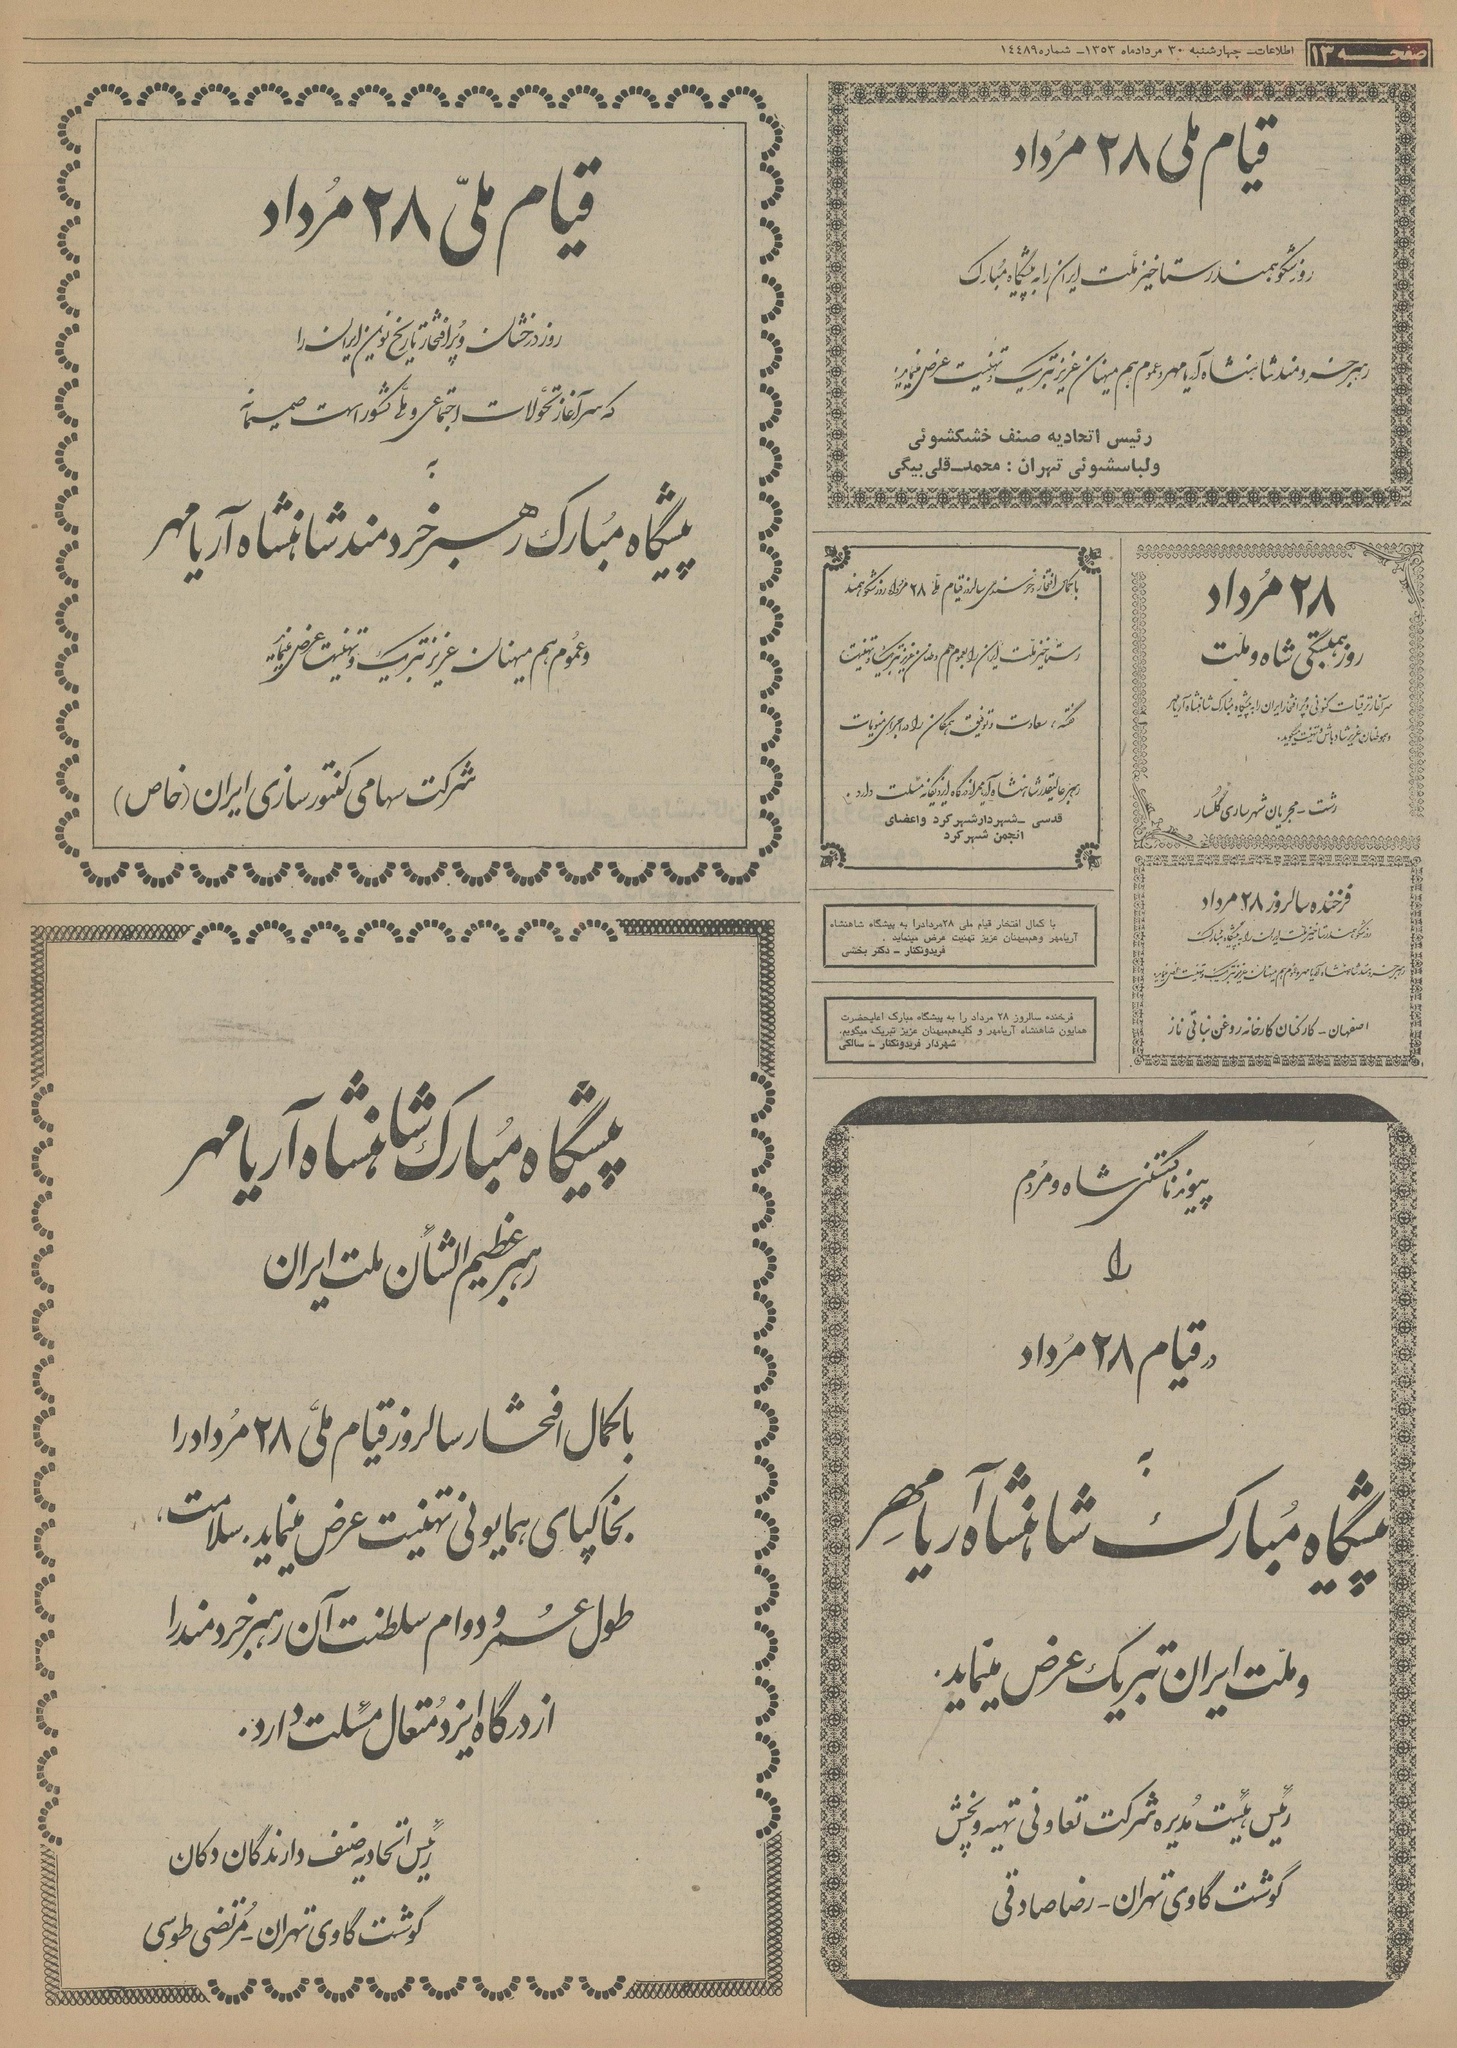 صفحه ۱۳
اطلاعات ـ چهارشنبه ۳۰ مردادماه ۱۳۵۳ ـ شماره ۱۴۴۸۹
قیام ملی ۲۸ مرداد
روز شکوهمند رستاخیز ملت ایران را به پیشگاه مبارک
رهبر خردمند شاهنشاه آریامهر و عموم هم میهنان عزیز تبریک و تهنیت عرض مینماید.
رئیس اتحادیه صنف خشکشوئی
ولباسشوئی تهران : محمد ـ قلی بیگی
قیام ملیّ ۲۸ مُرداد
روز درخشان و پُرافتخار تاریخ نوین ایران را
که سرآغاز تحوّلات اجتماعی و ملّی کشور است صمیمانه
به
پیشگاه مُبارک رهبر خردمند شاهنشاه آریامهر
و عمُوم هم میهنان عزیز تبریک و تهنیت عرض مینماید
شرکت سهامی کنتورسازی ایران (خاص)
۲۸ مُرداد
روز همبستگی شاه و ملّت
سرآغاز ترقیات کنونی و پُرافتخار ایران را به پیشگاه مبارک شاهنشاه آریامهر
و هموطنان عزیز شادباش و تهنیت میگوید.
رشت ـ مجریان شهرسازی گلسار
با کمال افتخار و خرسندی سالروز قیام ملی ۲۸ مرداد روز شکوهمند
رستاخیز ملت ایران را بعموم هم وطنان عزیز تبریک و تهنیت
گفته ، سعادت و توفیق همگان را در اجرای منویات
رهبر عالیقدر شاهنشاه آریامهر از درگاه ایزد یگانه مسئلت دارد .
قدسی ـ شهردار شهرکرد و اعضای
انجمن شهرکرد
با کمال افتخار قیام ملی ۲۸مردادرا به پیشگاه شاهنشاه
آریامهر وهم‌میهنان عزیز تهنیت عرض مینماید .
فریدونکنار ـ دکتر بخشی
فرخنده سالروز ۲۸ مرداد را به پیشگاه مبارک اعلیحضرت
همایون شاهنشاه آریامهر و کلیه‌هم‌میهنان عزیز تبریک میگویم.
شهردار فریدونکنار ـ سالکی
فرخنده سالروز ۲۸ مرداد
روز شکوهمند رستاخیز ملت ایران را به پیشگاه مبارک
رهبر خردمند شاهنشاه آریامهر و عموم هم میهنان عزیز تبریک و تهنیت عرض مینماید
اصفهان ـ کارکنان کارخانه روغن نباتی ناز
پیوند ناگسستنی شاه و مردُم
را
در قیام ۲۸ مُرداد
به
پیشگاه مُبارک شاهنشاه آریامهر
و ملّت ایران تبریک عرض مینماید.
رئیس هیئت مُدیره شرکت تعاونی تهیه و پخش
گوشت گاوی تهران ـ رضا صادقی
پیشگاه مُبارک شاهنشاه آریامهر
رهبر عظیم الشأن ملت ایران
با کمال افتخار سالروز قیام ملیّ ۲۸ مُرداد را
بخاکپای همایونی تهنیت عرض مینماید. سلامت،
طول عمر و دوام سلطنت آن رهبر خردمند را
از درگاه ایزد مُتعال مسئلت دارد.
رئیس اتحادیه صنف دارندگان دکان
گوشت گاوی تهران ـ مُرتضی طوسی